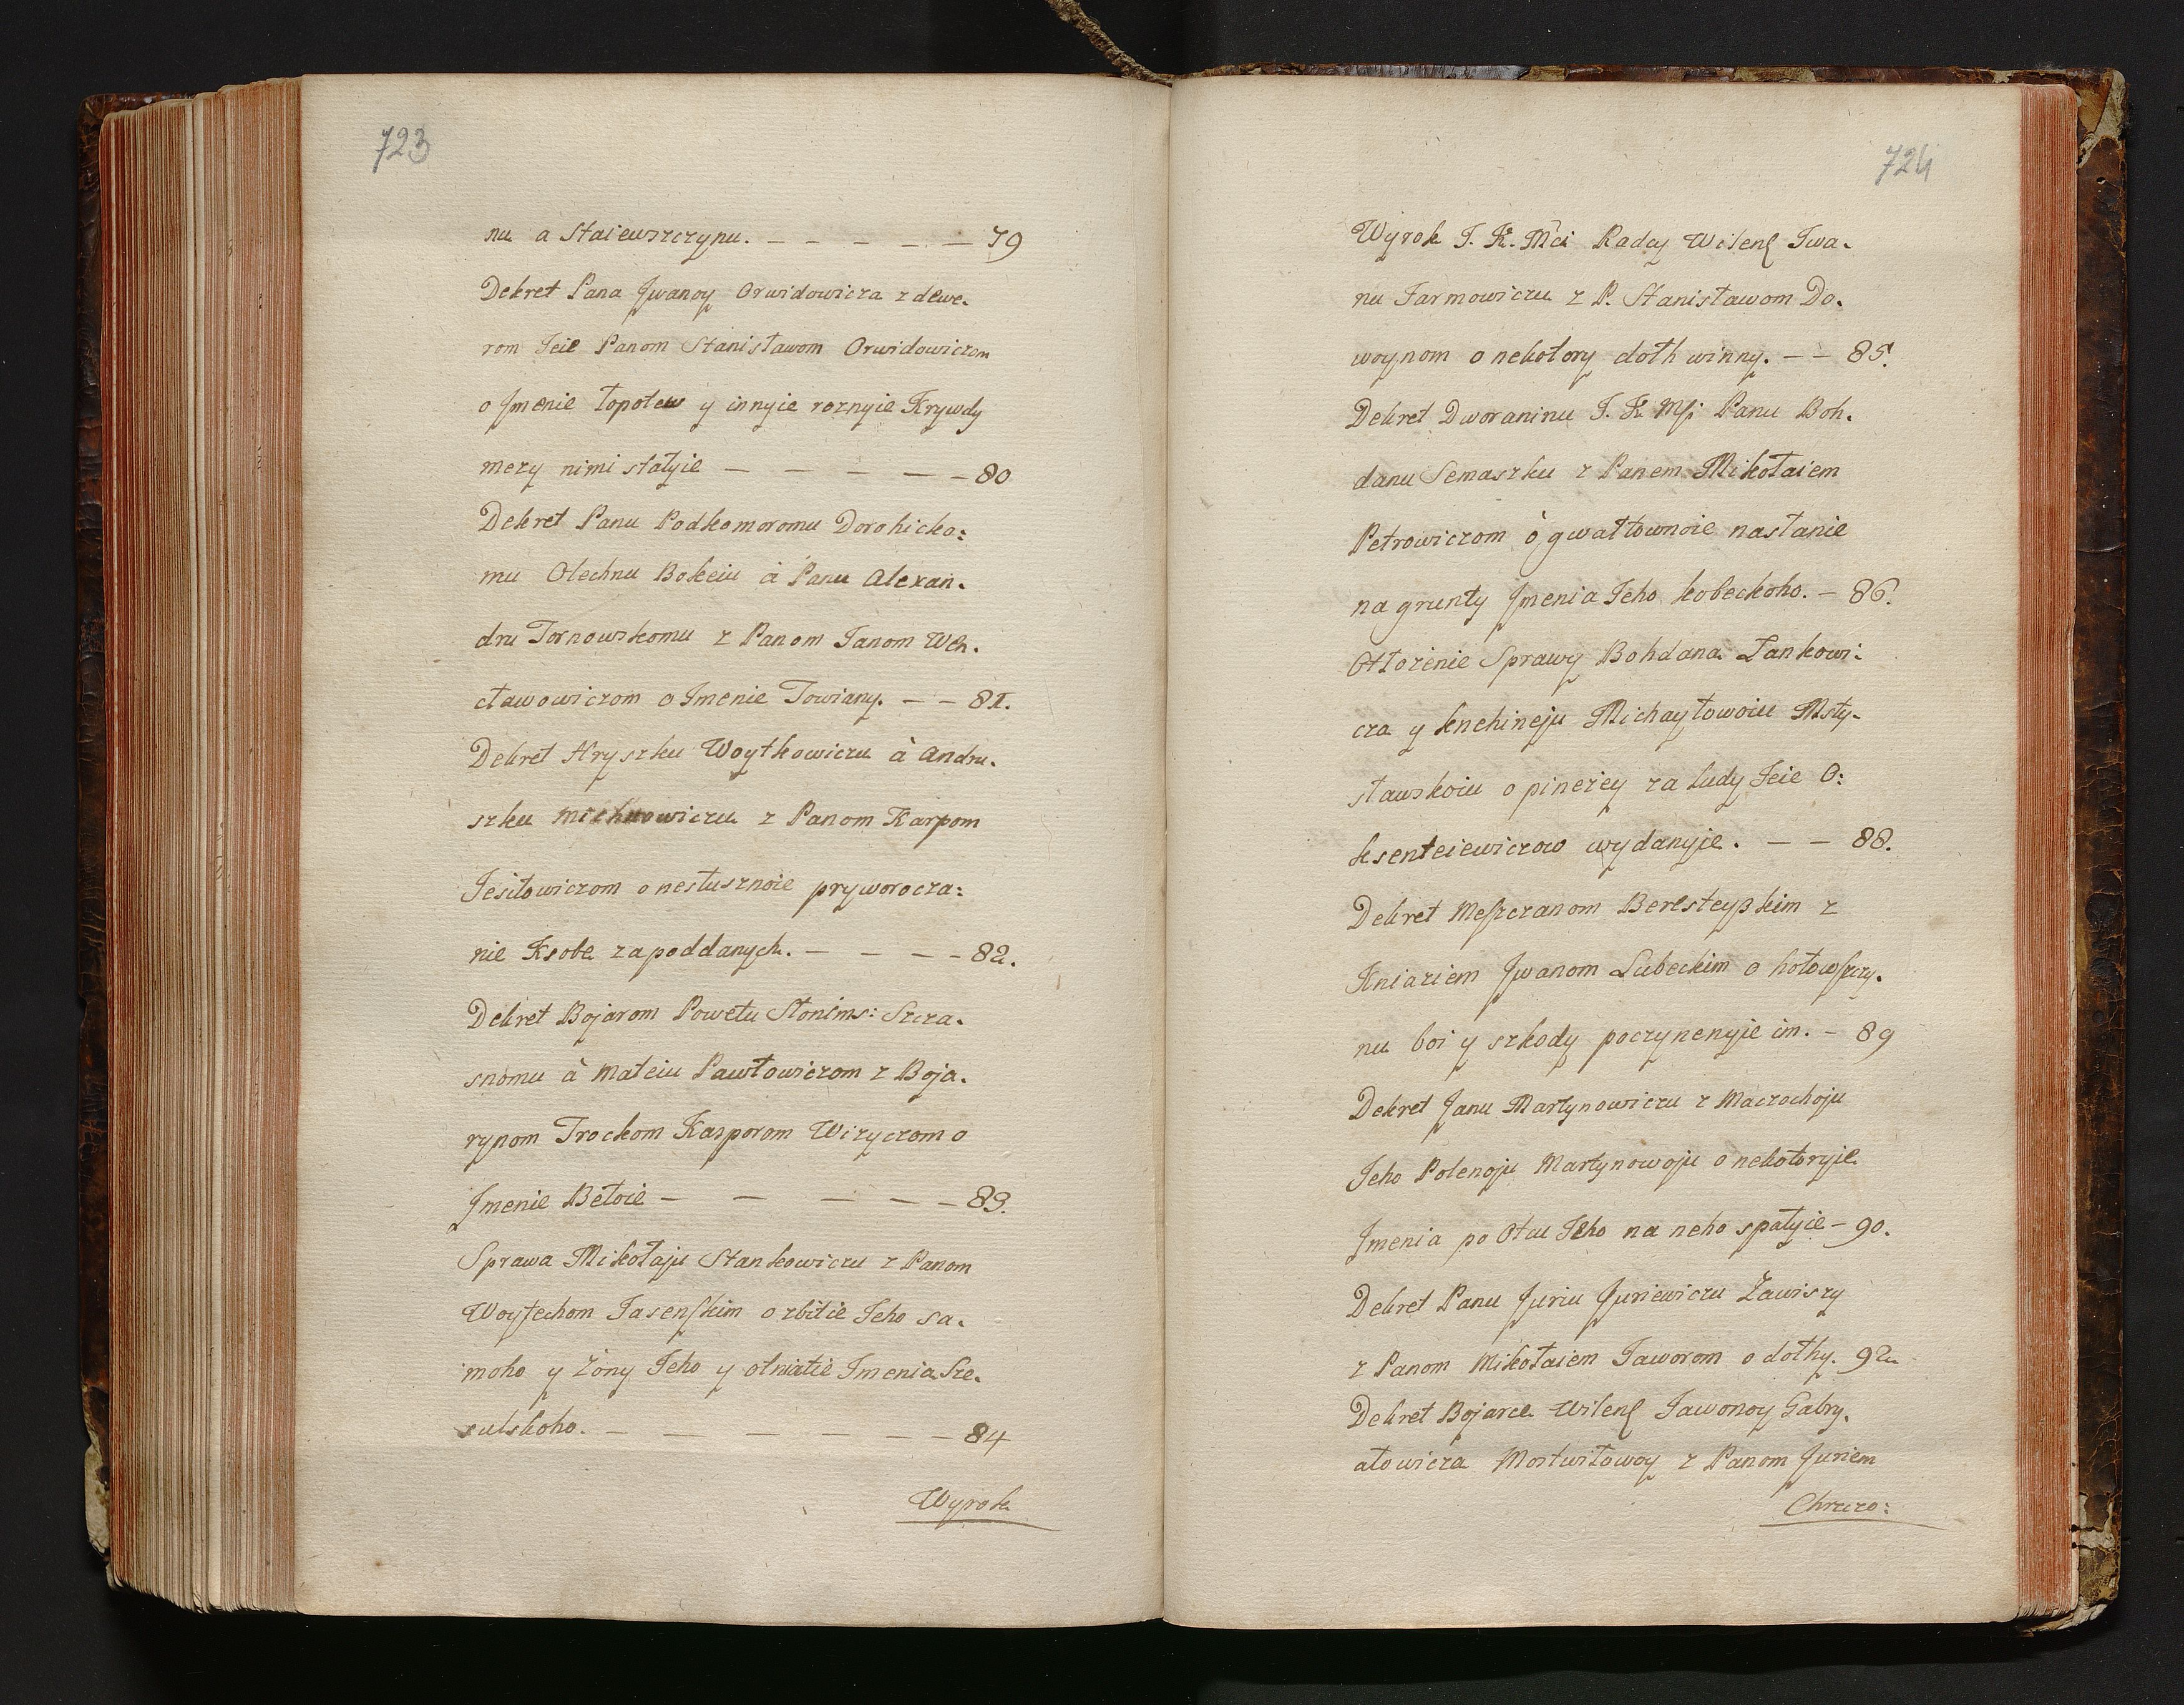 723
nu a Staiewszczynu. — — — — — 79
Dekret Pana Jwanoy Orwidowicza z dewe-
rom Jeie Panom Stanisławom Orwidowiczom
o Jmenie Łopołew y innyie roznyie Krywdy
mezy nimi stałyie — — — — — 80
Dekret Panu Podkomoromu Dorohicko:
mu Olechnu Bokeiu à Panu Alexan-
dru Tornowskomu z Panom Janom Wen-
cławowiczom o Jmenie Towiany. — — 81.
Dekret Hryszku Woytkowiczu à Andru-
szku Michnowiczu z Panom Karpom
Jesiłowiczom o nesłusznoie pryworocza:
nie Ksobe za poddanych. — — — — 82.
Dekret Bojarom Powetu Słonims: Szcza-
snomu à Mateiu Pawłowiczom z Boja-
rynom Trockom Kasporom Wizyczom o
Jmenie Bełoie — — — — — 83.
Sprawa Mikołaju Stankowiczu z Panom
Woytechom Jasenskim o zbitie Jeho sa-
moho y Żony Jeho y otniatie Jmenia Sze-
sulskoho. — — — — — — 84
Wyrok
724
Wyrok J. K. Mci Radcy Wilens Jwa-
nu Jarmowiczu z P. Stanisławom Do-
woynom o nekotory dołh winny. — — 85.
Dekret Dworaninu J. K. Msi Panu Boh-
danu Semaszku z Panem Mikołaiem
Petrowiczom ò gwałtownoie nastanie
na grunty Jmenia Jeho kobeckoho. — 86.
Otłożenie Sprawy Bohdana Łankowi:
cza y knehineju Michayłowoiu Msty-
sławskoiu o pineżey za ludy Jeie O:
ksenteiewiczow wydanyie. — — 88.
Dekret Meszczanom Beresteyskim z
Kniaziem Jwanom Lubeckim o hołowszczy-
nu boi y szkody poczynenyie im. — 89
Dekret Janu Martynowiczu z Maczochoju
Jeho Polenoju Martynowoju o nekotoryie
Jmenia po Otcu Jeho na neho spałyie — 90.
Dekret Panu Juriu Juriewiczu Zawiszy
z Panom Mikołaiem Jaworom o dołhy. 92.
Dekret Bojarce Wilens Jawonoy Gabry-
ałowicza Montwiłowoy z Panom Juriem
Chrzczo: